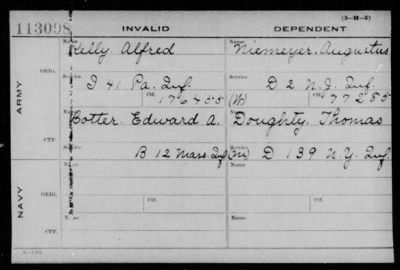 (3-H-5)
113098 INVALID DEPENDENT
Name Name
Kelly Alfred Niemeyer. Augustus
ARMY
ORIG. Service Service
I 41 Pa. Inf. D 2 N.J. Inf.
Ctf. 176455 (W) Ctf. 77255
Potter. Edward A. Doughty. Thomas
CTF.
B 12 Mass. Inf (M) D 139 N.Y. Inf.
NAVY
Name Name
ORIG. Ctf. Ctf.
Name Name
CTF.